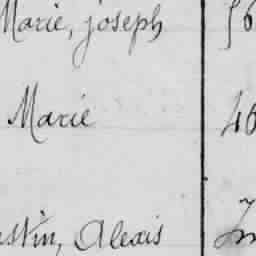 Marie, joseph 56
Marie 46
ustin, Alexis